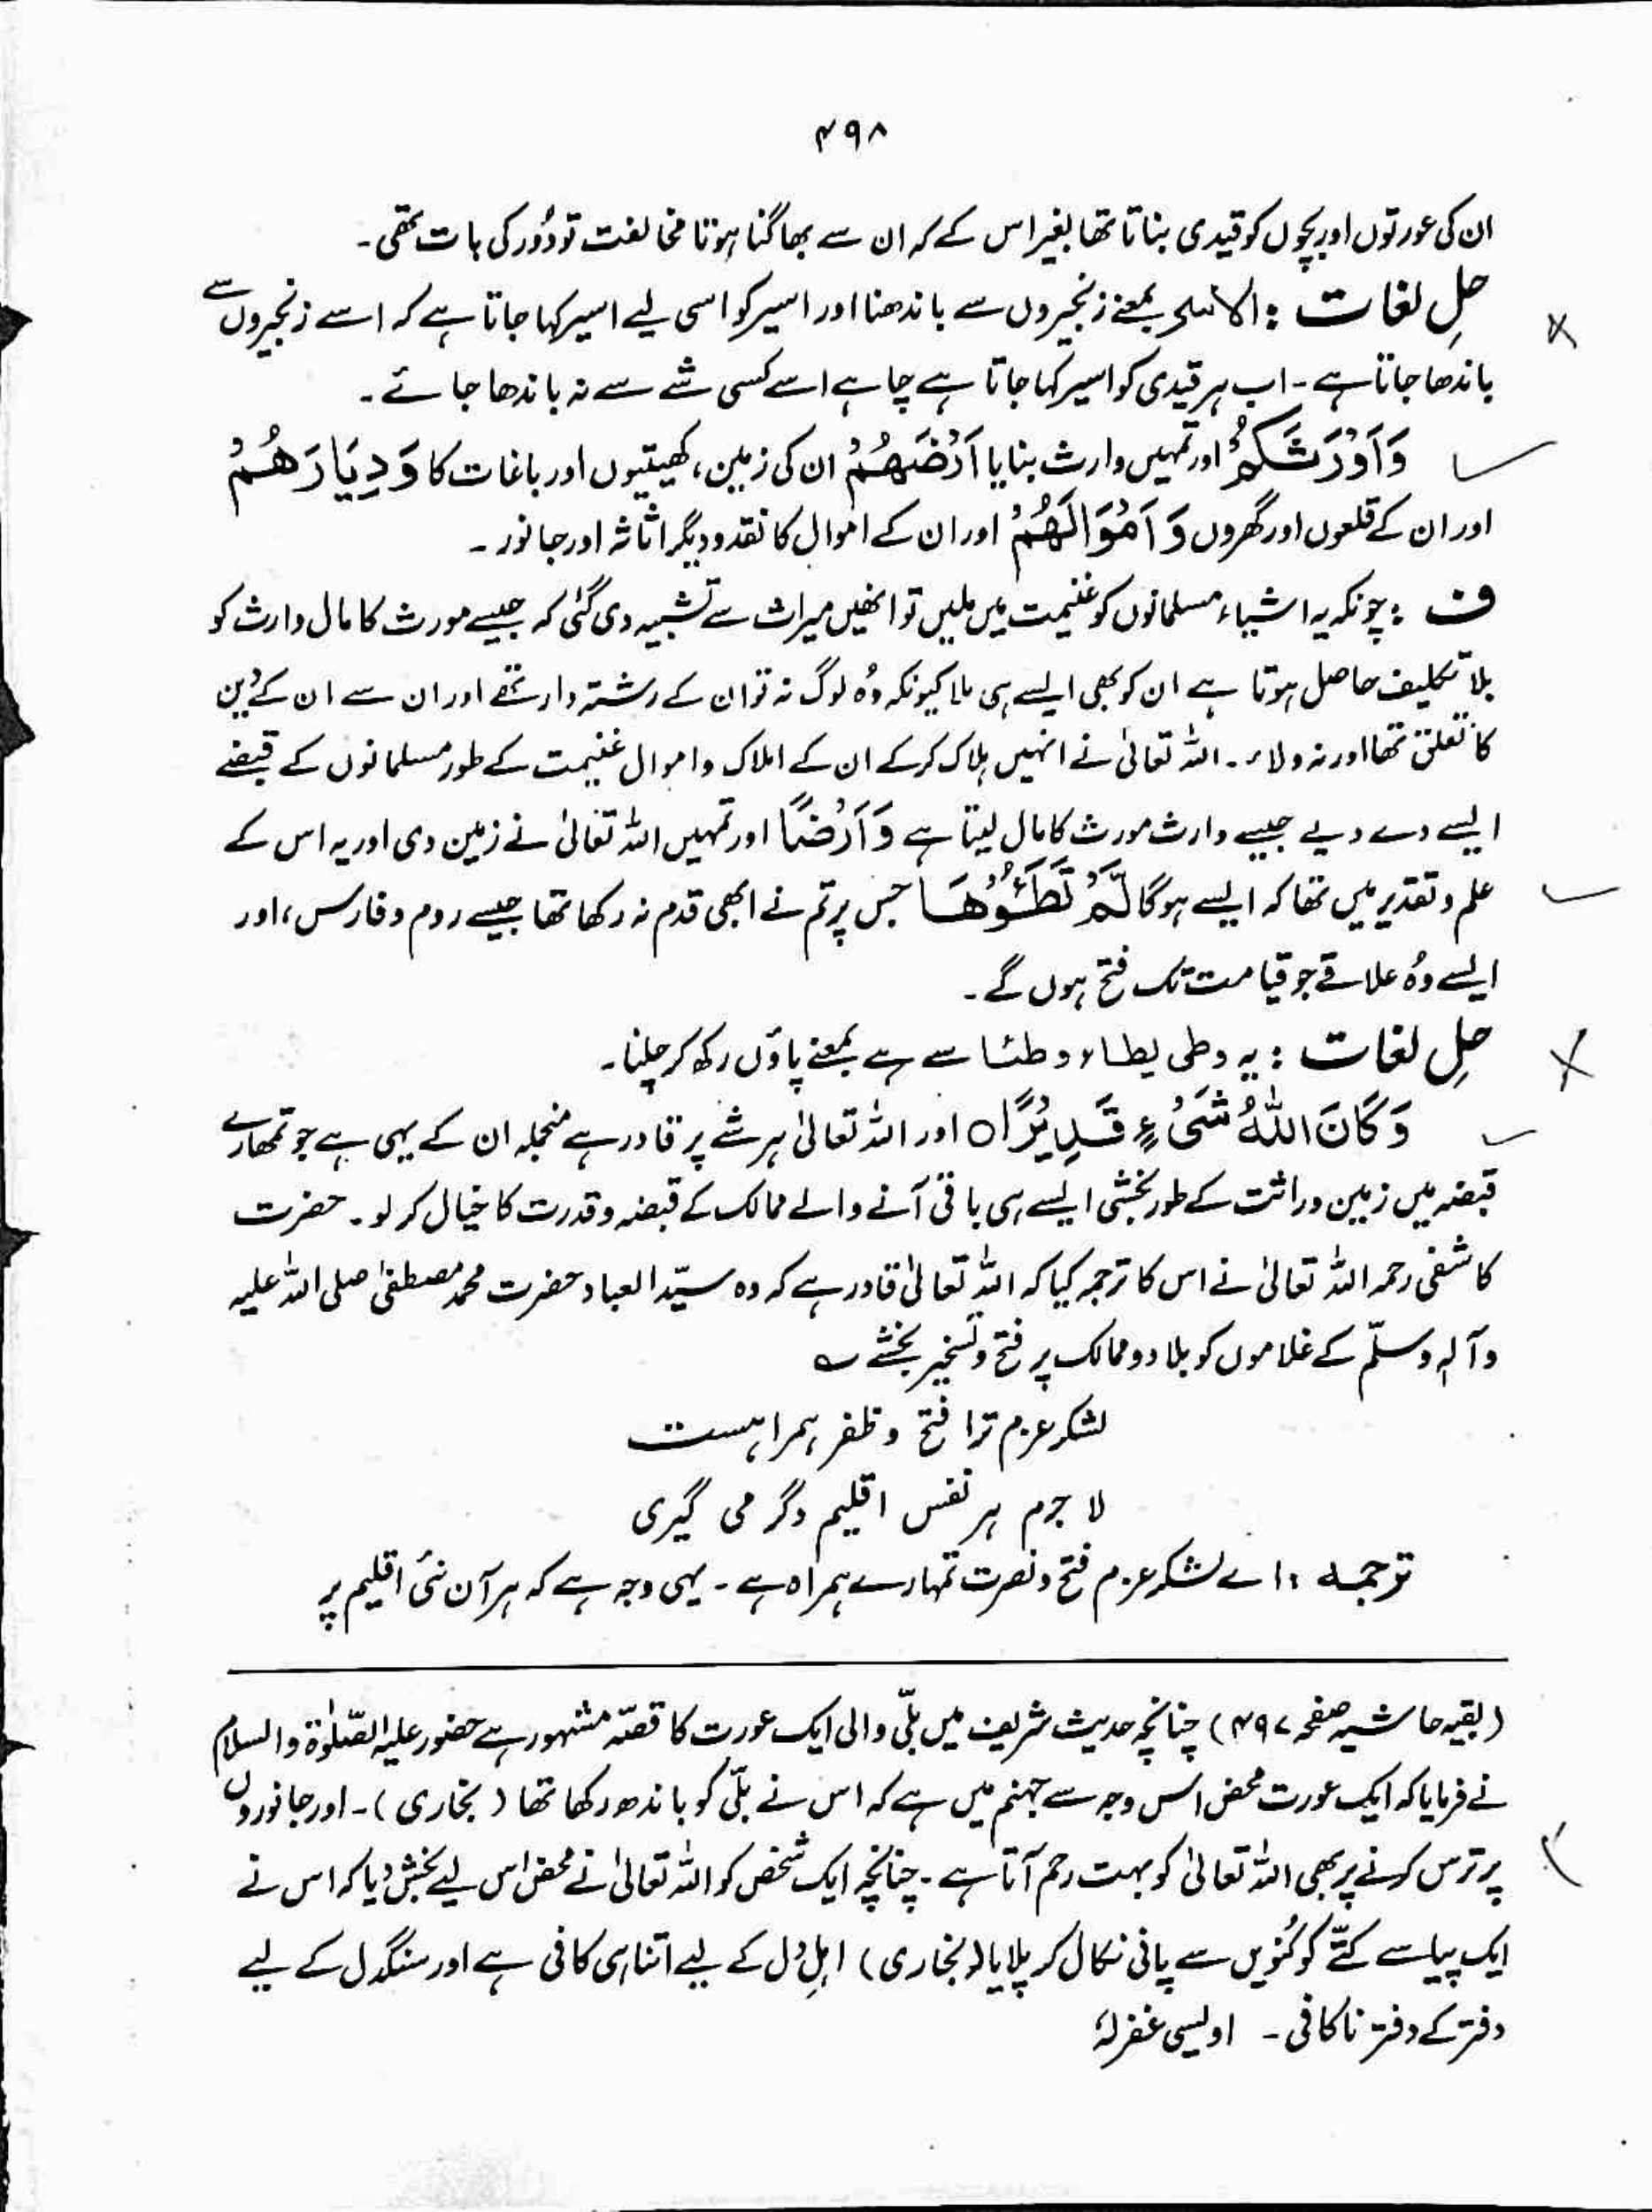 ۴۹۸
ان کی عورتوں اور بچوں کو قیدی بناتا تھا بغیر اس کے کہ ان سے بھاگنا ہوتا مخالفت تو دُور کی بات تھی۔
حلِ لغات : الاسر بمعنے زنجیروں سے باندھنا اور اسیر کو اسی لیے اسیر کہا جاتا ہے کہ اسے زنجیروں سے
باندھا جاتا ہے۔ اب ہر قیدی کو اسیر کہا جاتا ہے چاہے اسے کسی شے سے نہ باندھا جائے۔
وَاَوْرَثَكُمْ اور تمہیں وارث بنایا اَرْضَهُمْ ان کی زمین، کھیتیوں اور باغات کا وَدِيَارَهُمْ
اور ان کے قلعوں اور گھروں وَاَمْوَالَهُمْ اور ان کے اموال کا نقد و دیگر اثاثہ اور جانور ۔
ف : چونکہ یہ اشیاء مسلمانوں کو غنیمت میں ملیں تو انھیں میراث سے تشبیہ دی گئی کہ جیسے مورث کا مال وارث کو
بلا تکلیف حاصل ہوتا ہے ان کو بھی ایسے ہی ملا کیونکہ وُہ لوگ نہ تو ان کے رشتہ دار تھے اور ان سے ان کے دین
کا تعلق تھا اور نہ ولاء ۔ اللہ تعالیٰ نے انہیں ہلاک کرکے ان کے املاک و اموال غنیمت کے طور مسلمانوں کے قبضے
ایسے دے دیے جیسے وارث مورث کا مال لیتا ہے وَاَرْضًا اور تمہیں اللہ تعالیٰ نے زمین دی اور یہ اس کے
علم و تقدیر میں تھا کہ ایسے ہوگا لَّمْ تَطَـُٔوْهَا جس پر تم نے ابھی قدم نہ رکھا تھا جیسے روم و فارس، اور
ایسے وُہ علاقے جو قیامت تک فتح ہوں گے ۔
حلِ لغات : یہ وطی یطاء وطئا سے ہے بمعنے پاؤں رکھ کر چلنا۔
وَكَانَ اللّٰهُ شَىْءٍ قَدِيْرًا ۝ اور اللہ تعالیٰ ہر شے پر قادر ہے منجملہ ان کے یہی ہے جو تمھارے
قبضہ میں زمین وراثت کے طور بخشی ایسے ہی باقی آنے والے ممالک کے قبضہ و قدرت کا خیال کر لو ۔ حضرت
کاشفی رحمہ اللہ تعالیٰ نے اس کا ترجمہ کیا کہ اللہ تعالیٰ قادر ہے کہ وہ سیّد العباد حضرت محمد مصطفیٰ صلی اللہ علیہ
وآلہٖ وسلّم کے غلاموں کو بلاد و ممالک پر فتح و تسخیر بخشے ؎
لشکر عزم ترا فتح و ظفر ہمراہست
لا جرم ہر نفس اقلیم دگر می گیری
ترجمہ : اے لشکر عزم فتح و نصرت تمہارے ہمراہ ہے ۔ یہی وجہ ہے کہ ہر آن نئی اقلیم پر
(بقیہ حاشیہ صفحہ ۴۹۷) چنانچہ حدیث شریف میں بلّی والی ایک عورت کا قصّہ مشہور ہے حضور علیہ الصّلوٰۃ والسلام
نے فرمایا کہ ایک عورت محض اس وجہ سے جہنم میں ہے کہ اس نے بلّی کو باندھ رکھا تھا ( بخاری )۔ اور جانوروں
پر ترس کرنے پر بھی اللہ تعالیٰ کو بہت رحم آتا ہے ۔ چنانچہ ایک شخص کو اللہ تعالیٰ نے محض اس لیے بخش دیا کہ اس نے
ایک پیاسے کتّے کو کُنویں سے پانی نکال کر پلایا (بخاری) اہلِ دل کے لیے اتنا ہی کافی ہے اور سنگدل کے لیے
دفتر کے دفتر ناکافی ۔ اویسی غفرلہٗ